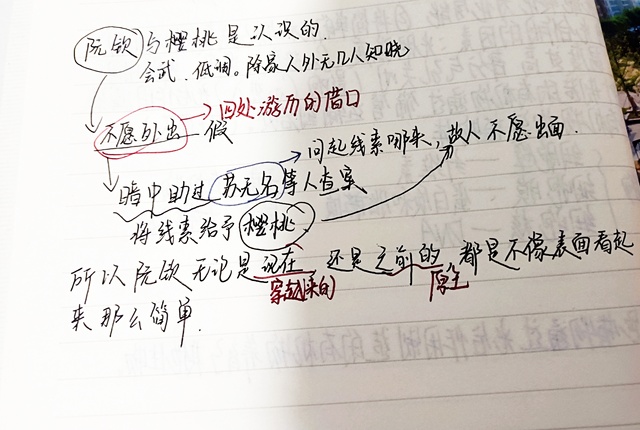 阮钦与樱桃是认识的.
会武、低调。除家人外无几人知晓
四处游历的借口
不愿外出—假
问起线索哪来,故人不愿出面.
暗中助过苏无名等人查案
将线索给予樱桃
所以阮钦无论是现在还是之前的都是不像表面看起
穿越来的 原主
来那么简单.